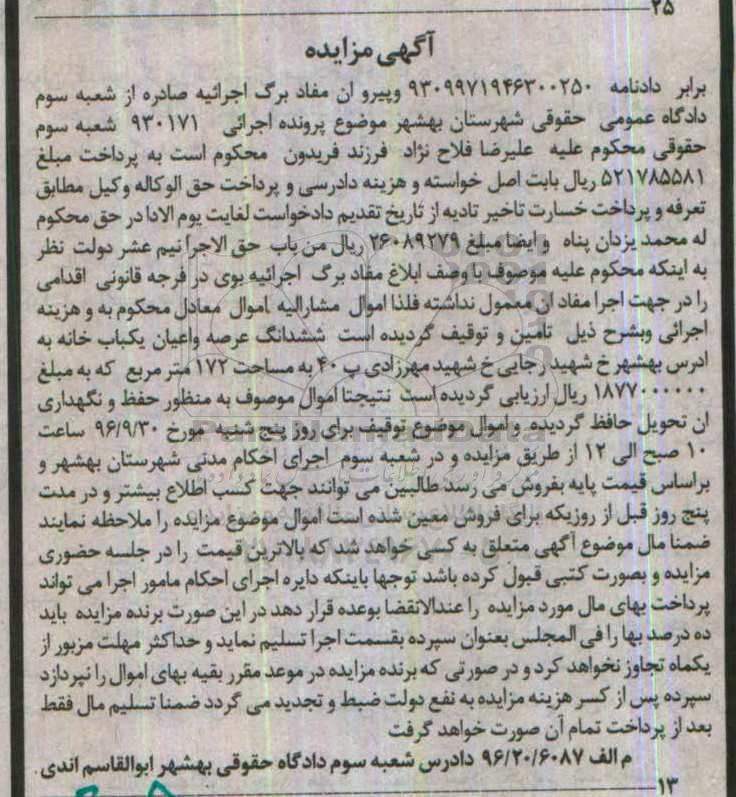 ۲۵
آگهی مزایده
برابر دادنامه ۹۳۰۹۹۷۱۹۴۶۳۰۰۲۵۰ وپیرو ان مفاد برگ اجرائیه صادره از شعبه سوم
دادگاه عمومی حقوقی شهرستان بهشهر موضوع پرونده اجرائی ۹۳۰۱۷۱ شعبه سوم
حقوقی محکوم علیه علیرضا فلاح نژاد فرزند فریدون محکوم است به پرداخت مبلغ
۵۲۱۷۸۵۵۸۱ ریال بابت اصل خواسته و هزینه دادرسی و پرداخت حق الوکاله وکیل مطابق
تعرفه و پرداخت خسارت تاخیر تادیه از تاریخ تقدیم دادخواست لغایت یوم الادا در حق محکوم
له محمد یزدان پناه و ایضا مبلغ ۲۶۰۸۹۲۷۹ ریال من باب حق الاجرا نیم عشر دولت نظر
به اینکه محکوم علیه موصوف با وصف ابلاغ مفاد برگ اجرائیه بوی در فرجه قانونی اقدامی
را در جهت اجرا مفاد ان معمول نداشته فلذا اموال مشارالیه اموال معادل محکوم به و هزینه
اجرائی وبشرح ذیل تامین و توقیف گردیده است ششدانگ عرصه واعیان یکباب خانه به
ادرس بهشهر خ شهید رجایی خ شهید مهرزادی پ ۴۰ به مساحت ۱۷۲ متر مربع که به مبلغ
۱۸۷۷۰۰۰۰۰۰ ریال ارزیابی گردیده است نتیجتا اموال موصوف به منظور حفظ و نگهداری
ان تحویل حافظ گردیده و اموال موضوع توقیف برای روز پنج شنبه مورخ ۹۶/۹/۳۰ ساعت
۱۰ صبح الی ۱۲ از طریق مزایده و در شعبه سوم اجرای احکام مدنی شهرستان بهشهر و
براساس قیمت پایه بفروش می رسد طالبین می توانند جهت کسب اطلاع بیشتر و در مدت
پنج روز قبل از روزیکه برای فروش معین شده است اموال موضوع مزایده را ملاحظه نمایند
ضمنا مال موضوع آگهی متعلق به کسی خواهد شد که بالاترین قیمت را در جلسه حضوری
مزایده و بصورت کتبی قبول کرده باشد توجها باینکه دایره اجرای احکام مامور اجرا می تواند
پرداخت بهای مال مورد مزایده را عندالانقضا بوعده قرار دهد در این صورت برنده مزایده باید
ده درصد بها را فی المجلس بعنوان سپرده بقسمت اجرا تسلیم نماید و حداکثر مهلت مزبور از
یکماه تجاوز نخواهد کرد و در صورتی که برنده مزایده در موعد مقرر بقیه بهای اموال را نپردازد
سپرده پس از کسر هزینه مزایده به نفع دولت ضبط و تجدید می گردد ضمنا تسلیم مال فقط
بعد از پرداخت تمام آن صورت خواهد گرفت
م الف ۹۶/۲۰/۶۰۸۷ دادرس شعبه سوم دادگاه حقوقی بهشهر ابوالقاسم اندی
۱۳